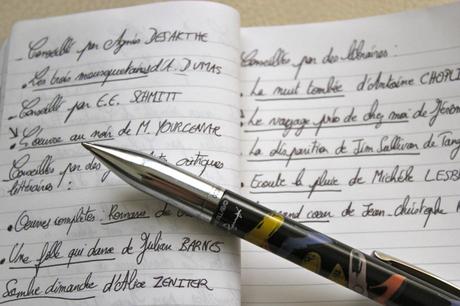 Conseillés par Agnès DESARTHE
• Les trois mousquetaires d'A. DUMAS
Conseillés par E.E. SCHMITT
• L'oeuvre au noir de M. YOURCENAR
Conseillés par des critiques
littéraires :
• Oeuvres complètes : Romans de
• Une fille qui danse de Julian BARNES
Sombre dimanche d'Alice ZENITER
Conseillés par des libraires :
• La nuit tombée d'Antoine CHOPL
• Le voyage près de chez moi de
• La disparition de Jim Sullivan de Tang
• Ecoute la pluie de Michèle LESB
coeur de Jean-Christophe